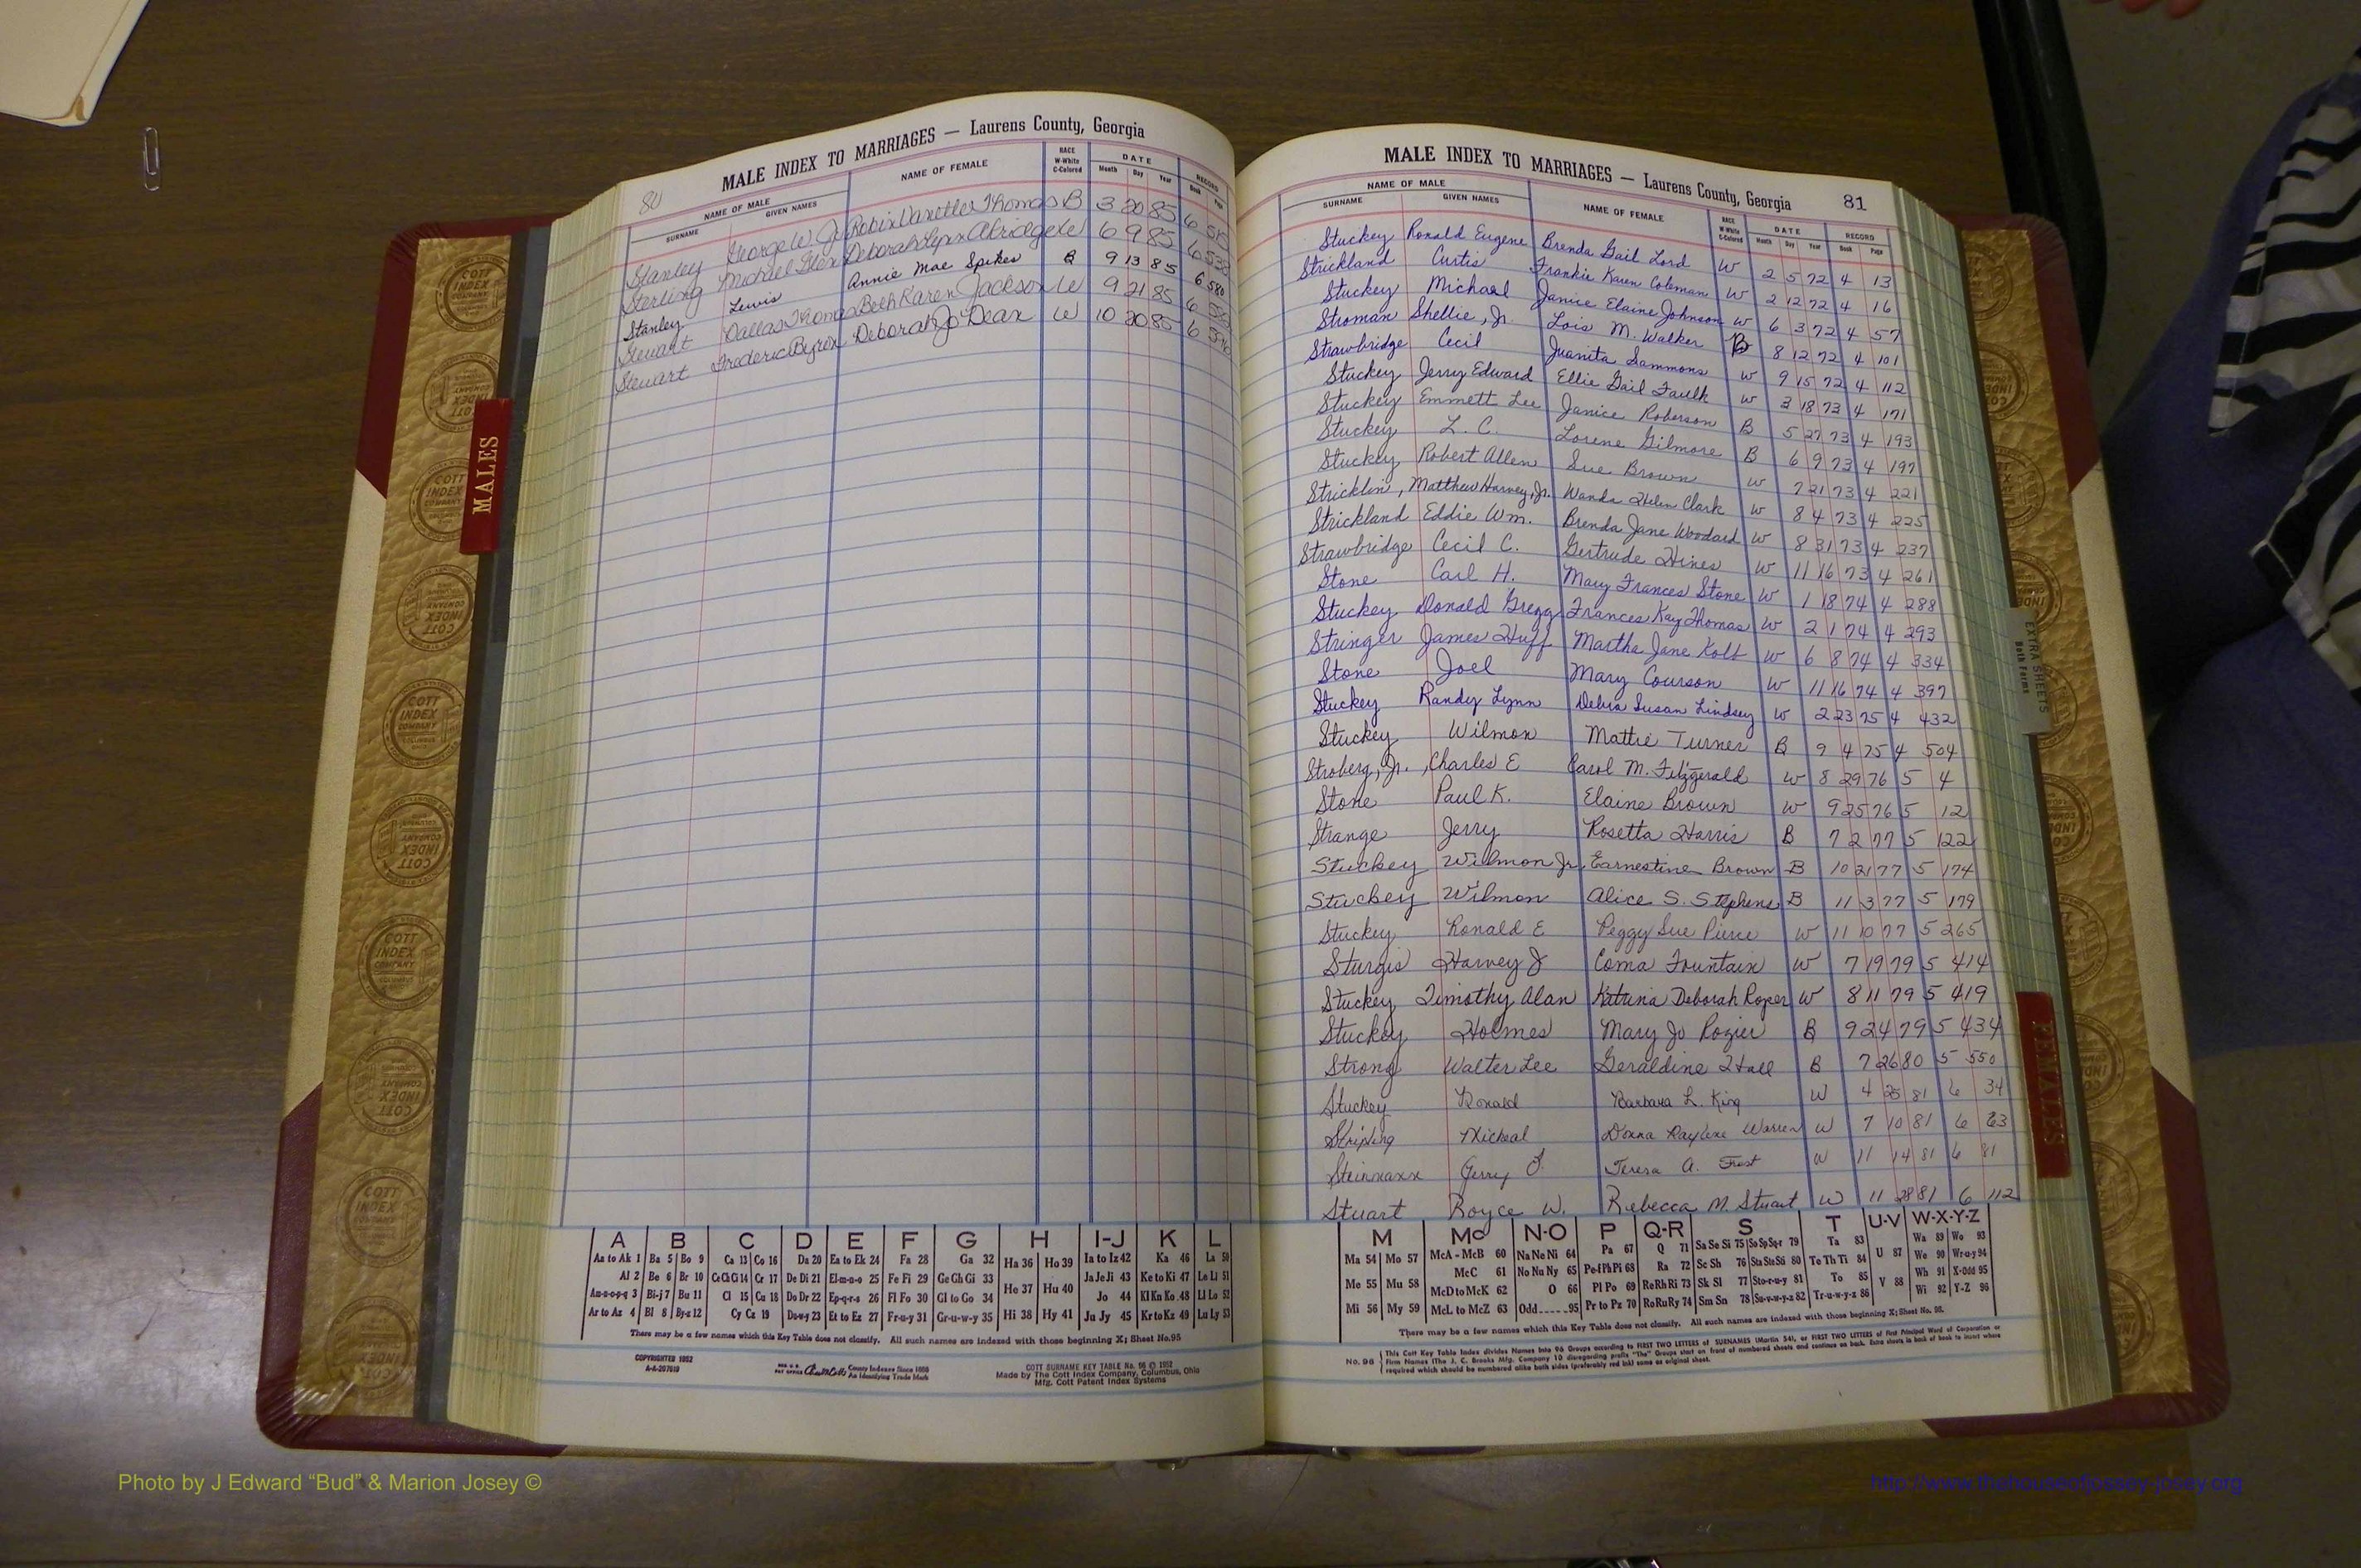 80
MALE INDEX TO MARRIAGES — Laurens County, Georgia
NAME OF MALE NAME OF FEMALE RACE W-White C-Colored DATE RECORD
SURNAME GIVEN NAMES Month Day Year Book Page
Stanley George W. Jr. Robin Thomas B 3 20 85 6
Sterling Michael Deborah Lynn W 6 9 85 6
Stanley Lewis Annie Mae Spikes B 9 13 85 6 580
Stewart Dallas Thomas Beth Karen Jackson W 9 21 85 6
Stewart Frederic Byron Deborah Jo Dean W 10 20 85 6
MALES
A B C D E F G H I-J K L
Aa to Ak 1 Ba 5 Bo 9 Ca 13 Co 16 Da 20 Ea to Ek 24 Fa 28 Ga 32 Ha 36 Ho 39 Ia to Iz 42 Ka 46 La 50
Al 2 Be 6 Br 10 Ce Ch Ci 14 Cr 17 De Di 21 El-m-n-o 25 Fe Fi 29 Ge Gh Gi 33 He 37 Hu 40 Ja Je Ji 43 Ke to Ki 47 Le Li 51
Am-n-o-p-q 3 Bi-j 7 Bu 11 Cl 15 Cu 18 Do Dr 22 Ep-q-r-s 26 Fl Fo 30 Gl to Go 34 Jo 44 Kl Kn Ko 48 Ll Lo 52
Ar to Az 4 Bl 8 By-z 12 Cy Cz 19 Du-w-y 23 Et to Ez 27 Fr-u-y 31 Gr-u-w-y 35 Hi 38 Hy 41 Ju Jy 45 Kr to Kz 49 Lu Ly 53
There may be a few names which this Key Table does not classify. All such names are indexed with those beginning X; Sheet No.95
COPYRIGHTED 1952
A-A-207619
County Indexes Since 1888
An Identifying Trade Mark
COTT SURNAME KEY TABLE No. 96 © 1952
Made by The Cott Index Company, Columbus, Ohio
Mfg. Cott Patent Index Systems
MALE INDEX TO MARRIAGES — Laurens County, Georgia 81
NAME OF MALE NAME OF FEMALE RACE W-White C-Colored DATE RECORD
SURNAME GIVEN NAMES Month Day Year Book Page
Stuckey Ronald Eugene Brenda Gail Lord W 2 5 72 4 13
Strickland Curtis Frankie Karen Coleman W 2 12 72 4 16
Stuckey Michael Janice Elaine Johnson W 6 3 72 4 57
Stroman Shellie, Jr. Lois M. Walker B 8 12 72 4 101
Strawbridge Cecil Juanita Sammons W 9 15 72 4 112
Stuckey Jerry Edward Ellie Gail Faulk W 3 18 73 4 171
Stuckey Emmett Lee Janice Roberson B 5 27 73 4 193
Stuckey L. C. Lorene Gilmore B 6 9 73 4 197
Stuckey Robert Allen Sue Brown W 7 21 73 4 221
Stricklin, Matthew Harvey, Jr. Wanda Helen Clark W 8 4 73 4 225
Strickland Eddie Wm. Brenda Jane Woodard W 8 31 73 4 237
Strawbridge Cecil C. Gertrude Hines W 11 16 73 4 261
Stone Carl H. Mary Frances Stone W 1 18 74 4 288
Stuckey Donald Gregg Frances Kay Thomas W 2 1 74 4 293
Stringer James Huff Martha Jane Kolb W 6 8 74 4 334
Stone Joel Mary Courson W 11 16 74 4 397
Stuckey Randy Lynn Debra Susan Lindsey W 2 23 75 4 432
Stuckey Wilmon Mattie Turner B 9 4 75 4 504
Stroberg, Jr., Charles E Carol M. Fitzgerald W 8 29 76 5 4
Stone Paul K. Elaine Brown W 9 25 76 5 12
Strange Jerry Rosetta Harris B 7 2 77 5 122
Stuckey Wilmon Jr. Earnestine Brown B 10 21 77 5 174
Stuckey Wilmon Alice S. Stephens B 11 3 77 5 179
Stuckey Ronald E Peggy Sue Pierce W 11 10 77 5 265
Sturgis Harvey J Coma Fountain W 7 19 79 5 414
Stuckey Timothy Alan Katrina Deborah Roper W 8 11 79 5 419
Stuckey Holmes Mary Jo Rozier B 9 24 79 5 434
Strong Walter Lee Geraldine Hall B 7 26 80 5 550
Stuckey Ronald Barbara L. King W 4 25 81 6 34
Stripling Micheal Donna Raylene Warren W 7 10 81 6 63
Steinmann Gerry Teresa A. Frost W 11 14 81 6 81
Stuart Royce W. Rebecca M. Stuart W 11 28 81 6 112
EXTRA SHEETS
Both Forms
FEMALES
M Mc N-O P Q-R S T U-V W-X-Y-Z
Ma 54 Mo 57 McA - McB 60 Na Ne Ni 64 Pa 67 Q 71 Sa Se Si 75 So Sp Sq-r 79 Ta 83 Wa 89 Wo 93
McC 61 No Nu Ny 65 Pe-f Ph Pi 68 Ra 72 Sc Sh 76 Sta Ste Sti 80 Te Th Ti 84 U 87 We 90 Wr-u-y 94
Me 55 Mu 58 McD to McK 62 O 66 Pl Po 69 Re Rh Ri 73 Sk Sl 77 Sto-r-u-y 81 To 85 V 88 Wh 91 X-Odd 95
Mi 56 My 59 McL to McZ 63 Odd.....95 Pr to Pz 70 Ro Ru Ry 74 Sm Sn 78 Su-v-w-y-z 82 Tr-u-w-y-z 86 Wi 92 Y-Z 96
There may be a few names which this Key Table does not classify. All such names are indexed with those beginning X; Sheet No. 95.
No. 96
This Cott Key Table Index divides Names into 96 Groups according to FIRST TWO LETTERS of SURNAMES (Martin 54), or FIRST TWO LETTERS of First Principal Word of Corporation or
Firm Names (The J. C. Brooks Mfg. Company 10 disregarding prefix "The" Groups start on front of numbered sheets and continue on back. Extra sheets in back of book to insert where
required which should be numbered alike both sides (preferably red ink) same as original sheet.
Photo by J Edward “Bud” & Marion Josey ©
http://www.thehouseofjossey-josey.org